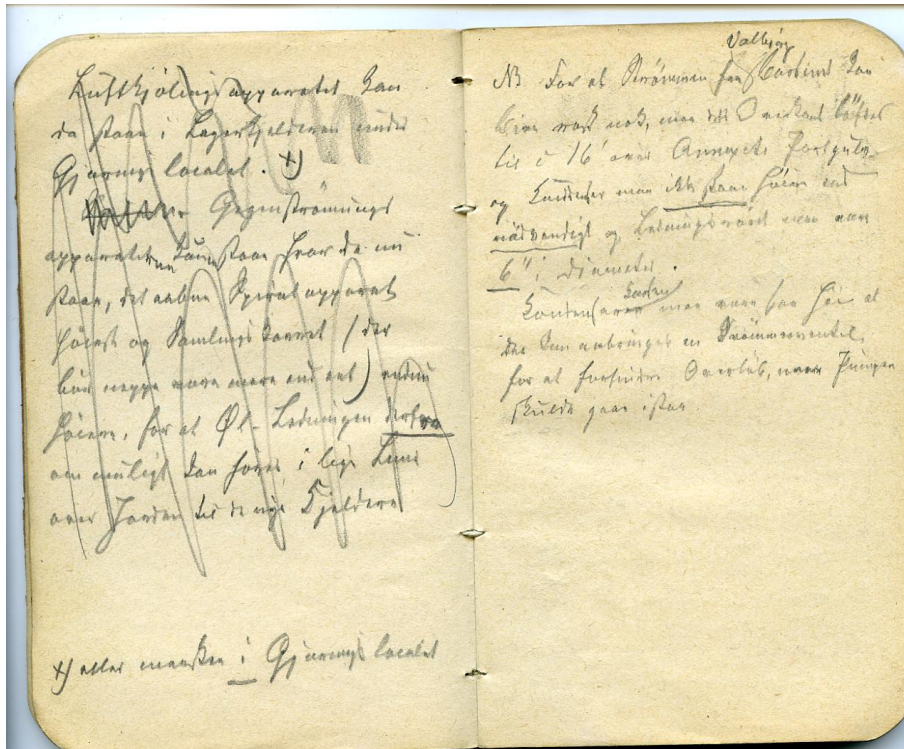 Luftkjölingsapparatet kan
da staa i Lagerkjelderen under
Gjærings localet. x)
Gegenströmungs
apparaterne kunne staa hvor de nu
staa, det aabne Spiralapparat
höiest og Samlingskarret (der
bör neppe være mere end eet) endnu
höiere, for at Øl-Ledningen derfra
om muligt kan föres i lige Linie
over Jorden til de nye Kjeldere
x) eller maaske i Gjærings localet
Valby
NB For at Strömmen fra kan
blive rask nok, maa det löftes
til c 16' over Annexets
og maa ikke staa höiere end
nödvendigt og Ledningsröret maa være
6" i Diameter.
Karret
maa være saa höi at
der kan anbringes en Svömmerventil,
for at forhindre Overlöb, naar Pumpen
skulde gaa istaa.